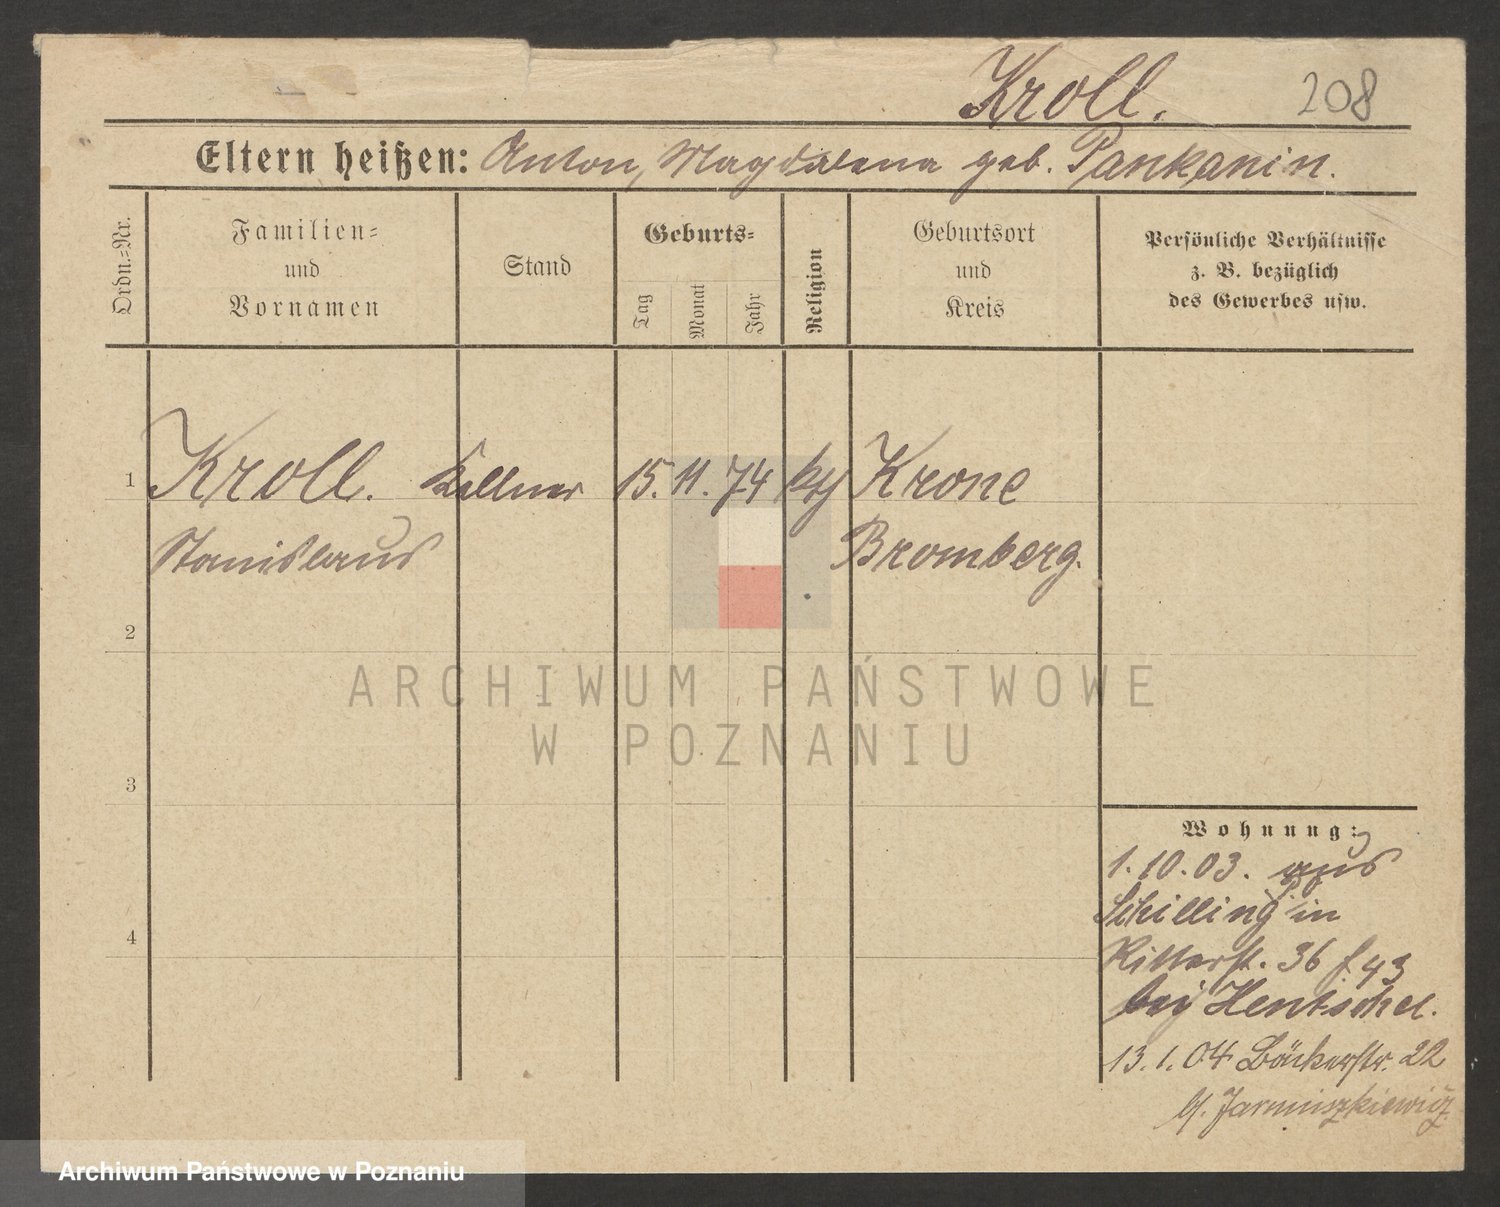 Kroll. 208
Eltern heißen: Anton, Magdalena geb. Pankanin.
Ordn.-Nr.
Familien-
und
Vornamen
Stand
Geburts-
Tag
Monat
Jahr
Religion
Geburtsort
und
Kreis
Persönliche Verhältnisse
z. B. bezüglich
des Gewerbes usw.
1 Kroll. Kellner 15. 11. 74 kth Krone
Stanislaus Bromberg.
2
3
4
Wohnung:
1. 10. 03. aus
Schilling in
Ritterst. 36 43
bei Hentschel.
13. 1. 04 Bäckerstr. 22
b/. Jarmuszkiewicz
ARCHIWUM PAŃSTWOWE
W POZNANIU
Archiwum Państwowe w Poznaniu